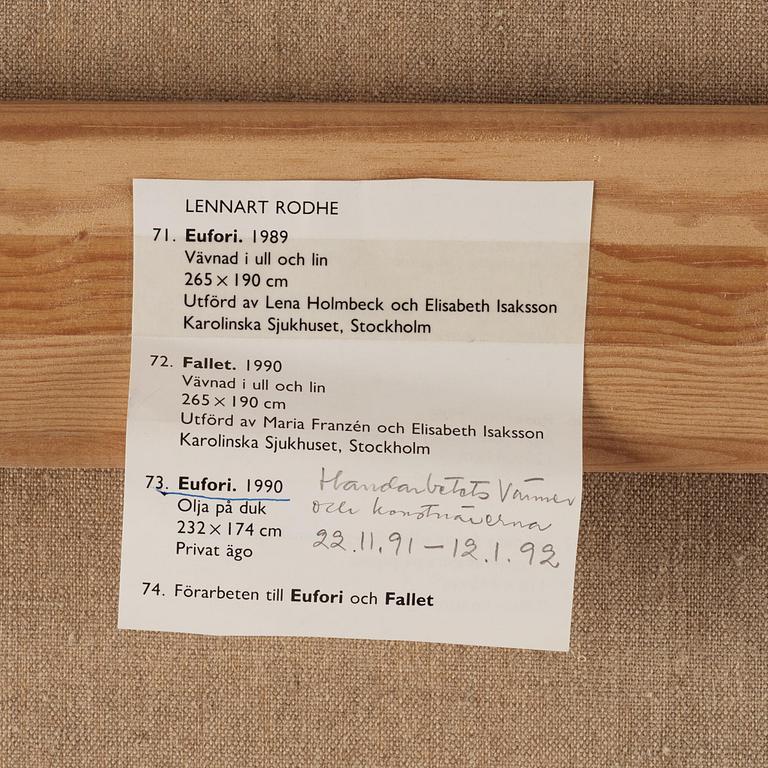 LENNART RODHE
71. Eufori. 1989
Vävnad i ull och lin
265 × 190 cm
Utförd av Lena Holmbeck och Elisabeth Isaksson
Karolinska Sjukhuset, Stockholm
72. Fallet. 1990
Vävnad i ull och lin
265 × 190 cm
Utförd av Maria Franzén och Elisabeth Isaksson
Karolinska Sjukhuset, Stockholm
73. Eufori. 1990
Olja på duk
232 × 174 cm
Privat ägo
Handarbetets Vänner
och konstnärerna
22.11.91 – 12.1.92
74. Förarbeten till Eufori och Fallet